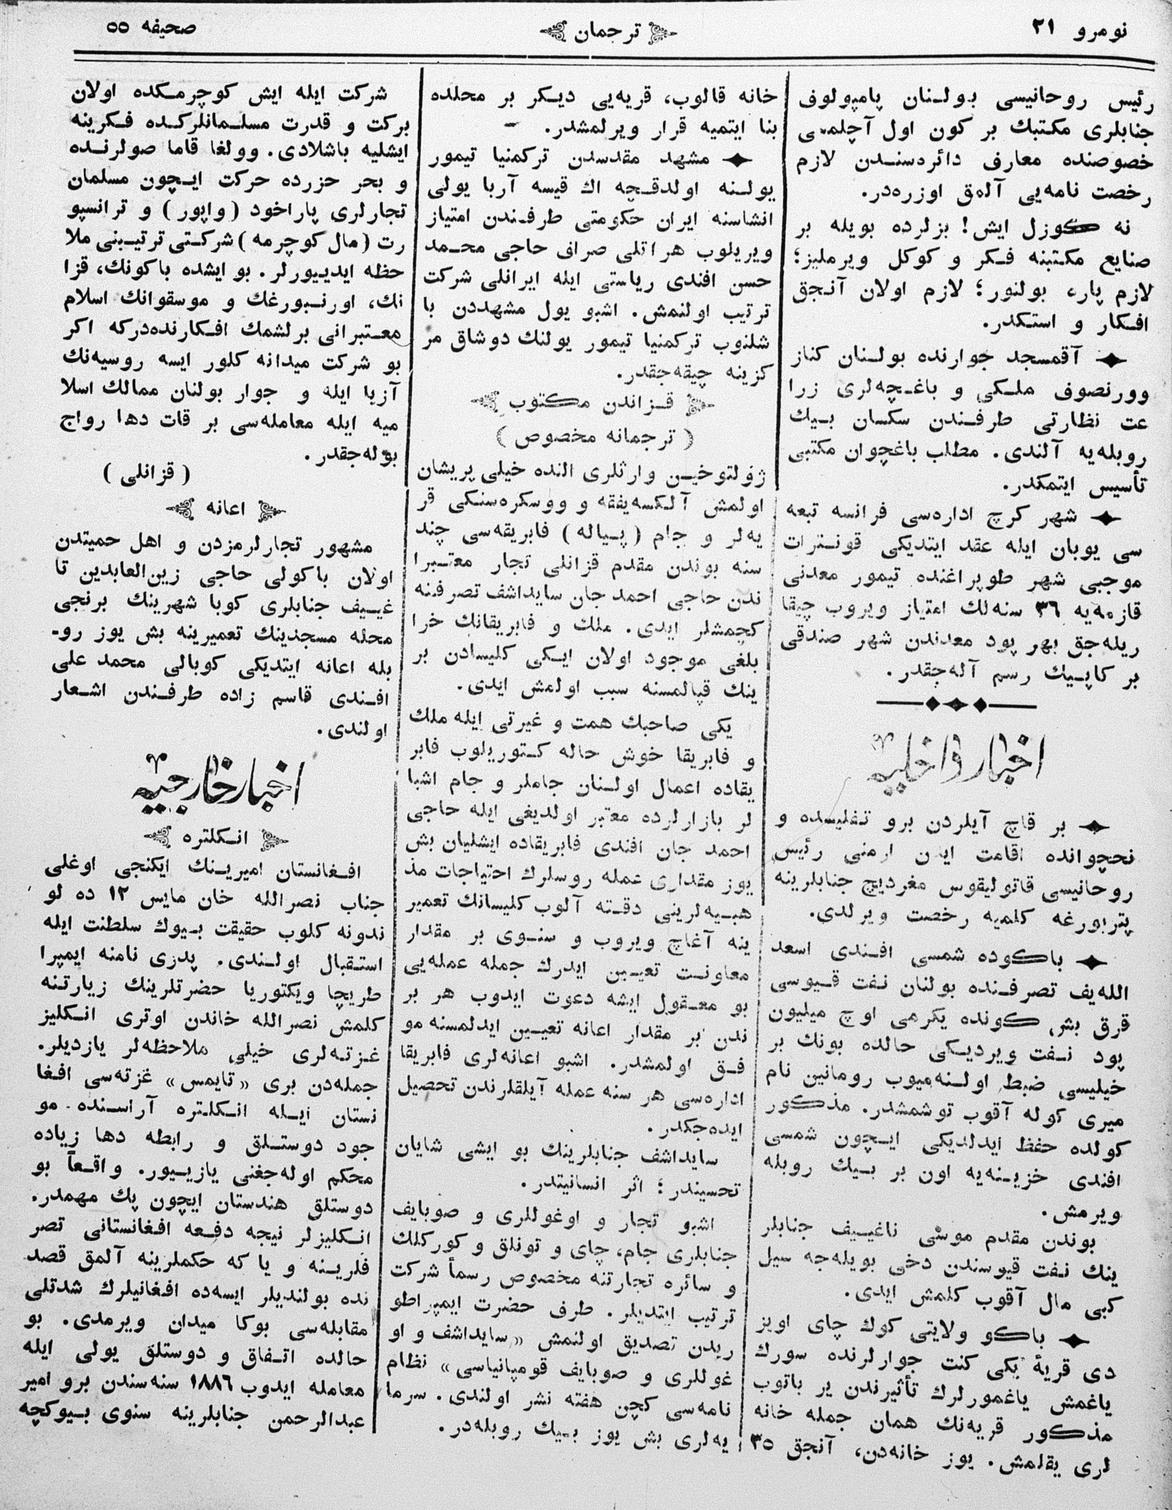 نومرو ٢١
ترجمان
صحیفه ٥٥
رئیس روحانیسی بولنان پامپولوف
جنابلری مكتبك بر كون اول آچلمه‌سی
خصوصنده معارف دائره‌سندن لازم
رخصت نامه‌یی آلمق اوزره‌در.
نه كوزل ایش! بزلرده بویله بر
صنایع مكتبنه فكر و كوكل ویرملیز؛
لازم پاره بولنور؛ لازم اولان آنجق
افكار و استكدر.
آقمسجد جوارنده بولنان كناز
وورنصوف ملكی و باغچه‌لری زرا
عت نظارتی طرفندن سكسان بیك
روبله‌یه آلندی. مطلب باغچوان مكتبی
تأسیس ایتمكدر.
شهر كرچ اداره‌سی فرانسه تبعه
سی یوبان ایله عقد ایتدیكی قونترات
موجبی شهر طوپراغنده تیمور معدنی
قازمه‌یه ٣٦ سنه‌لك امتیاز ویروب چیقا
ریله‌جق بهر پود معدندن شهر صندقی
بر كاپیك رسم آله‌جقدر.
اخبار داخلیه
بر قاچ آیلردن برو تفلیسده و
نخچوانده اقامت ایدن ارمنی رئیس
روحانیسی قاتولیقوس مغردیچ جنابلرینه
پتربورغه كلمیه رخصت ویرلدی.
باكوده شمسی افندی اسعد
الله‌یف تصرفنده بولنان نفت قیوسی
قرق بش كونده یكرمی اوچ میلیون
پود نفت ویردیكی حالده بونك بر
خیلیسی ضبط اولنه‌میوب رومانین نام
میری كوله آقوب توشمشدر. مذكور
كولده حفظ ایدلدیكی ایچون شمسی
افندی خزینه‌یه اون بر بیك روبله
ویرمش.
بوندن مقدم موسی ناغییف جنابلر
ینك نفت قیوسندن دخی بویله‌جه سیل
كبی مال آقوب كلمش ایدی.
باكو ولایتی كوك چای اویز
دی قریهٔ یكی كنت جوارلرنده سورك
یاغمش یاغمورلرك تأثیرندن یر باتوب
مذكور قریه‌نك همان جمله خانه
لری یقلمش. یوز خانه‌دن، آنجق ٣٥
خانه قالوب، قریه‌یی دیكر بر محلده
بنا ایتمیه قرار ویرلمشدر.
مشهد مقدسدن تركمنیا تیمور
یولنه اولدقچه اك قیسه آربا یولی
انشاسنه ایران حكومتی طرفندن امتیاز
ویریلوب هراتلی صرافی حاجی محمد
حسن افندی ریاستی ایله ایرانلی شركت
ترتیب اولنمش. اشبو یول مشهددن با
شلنوب تركمنیا تیمور یولنك دوشاق مر
كزینه چیقه‌جقدر.
قزاندن مكتوب
(ترجمانه مخصوص)
ژولتوخین وارثلری النده خیلی پریشان
اولمش آلكسه‌یفقه و ووسكره‌سنكی قر
یه‌لر و جام (پیاله) فابریقه‌سی چند
سنه بوندن مقدم قزانلی تجار معتبرا
ندن حاجی احمد جان سایداشف تصرفنه
كچمشلر ایدی. ملك و فابریقانك خرا
بلغی موجود اولان ایكی كلیسادن بر
ینك قپالمسنه سبب اولمش ایدی.
یكی صاحبك همت و غیرتی ایله ملك
و فابریقا خوش حاله كتوریلوب فابر
یقاده اعمال اولنان جاملر و جام اشیا
لر بازارلرده معتبر اولدیغی ایله حاجی
احمد جان افندی فابریقاده ایشلیان بش
یوز مقداری عمله روسلرك احتیاجات مذ
هبیه‌لرینی دقته آلوب كلیسانك تعمیر
ینه آغاچ ویروب و سنوی بر مقدار
معاونت تعیین ایدرك جمله عمله‌یی
بو معقول ایشه دعوت ایدوب هر بر
ندن بر مقدار اعانه تعیین ایدلمسنه مو
فق اولمشدر. اشبو اعانه‌لری فابریقا
اداره‌سی هر سنه عمله آیلقلرندن تحصیل
ایده‌جكدر.
سایداشف جنابلرینك بو ایشی شایان
تحسیندر؛ اثر انسانیتدر.
اشبو تجار و اوغوللری و صوبایف
جنابلری جام، چای و توتلق و كوركلك
و سائره تجارتنه مخصوص رسماً شركت
ترتیب ایتدیلر. طرف حضرت ایمپراطو
ریدن تصدیق اولنمش «سایداشف و او
غوللری و صوبایف قومپانیاسی» نظام
نامه‌سی كچن هفته نشر اولندی. سرما
یه‌لری بش یوز بیك روبله‌در.
شركت ایله ایش كوچرمكده اولان
بركت و قدرت مسلمانلركده فكرینه
ایشلیه باشلادی. وولغا قاما صولرنده
و بحر حزرده حركت ایچون مسلمان
تجارلری پاراخود (واپور) و ترانسپو
رت (مال كوچرمه) شركتی ترتیبنی ملا
حظه ایدییورلر. بو ایشده باكونك، قزا
نك، اورنبورغك و موسقوانك اسلام
معتبرانی برلشمك افكارنده‌دركه اكر
بو شركت میدانه كلور ایسه روسیه‌نك
آزیا ایله و جوار بولنان ممالك اسلا
میه ایله معامله‌سی بر قات دها رواج
بوله‌جقدر.
(قزانلی)
اعانه
مشهور تجارلرمزدن و اهل حمیتدن
اولان باكولی حاجی زین‌العابدین تا
غییف جنابلری كوبا شهرینك برنجی
محله مسجدینك تعمیرینه بش یوز رو-
بله اعانه ایتدیكی كوبالی محمد علی
افندی قاسم زاده طرفندن اشعار
اولندی.
اخبار خارجیه
انكلتره
افغانستان امیرینك ایكنجی اوغلی
جناب نصرالله خان مایس ١٢ ده لو
ندونه كلوب حقیقت بیوك سلطنت ایله
استقبال اولندی. پدری نامنه ایمپرا
طریچا ویكتوریا حضرتلرینك زیارتنه
كلمش نصرالله خاندن اوتری انكلیز
غزته‌لری خیلی ملاحظه‌لر یازدیلر.
جمله‌دن بری «تایمس» غزته‌سی افغا
نستان ایله انكلتره آراسنده مو
جود دوستلق و رابطه دها زیاده
محكم اوله‌جغنی یازییور. واقعاً بو
دوستلق هندستان ایچون پك مهمدر.
انكلیزلر نیجه دفعه افغانستانی تصر
فلرینه و یا كه حكملرینه آلمق قصد
نده بولندیلر ایسه‌ده افغانیلرك شدتلی
مقابله‌سی بوكا میدان ویرمدی. بو
حالده اتفاق و دوستلق یولی ایله
معامله ایدوب ١٨٨٦ سنه‌سندن برو امیر
عبدالرحمن جنابلرینه سنوی بیوكچه